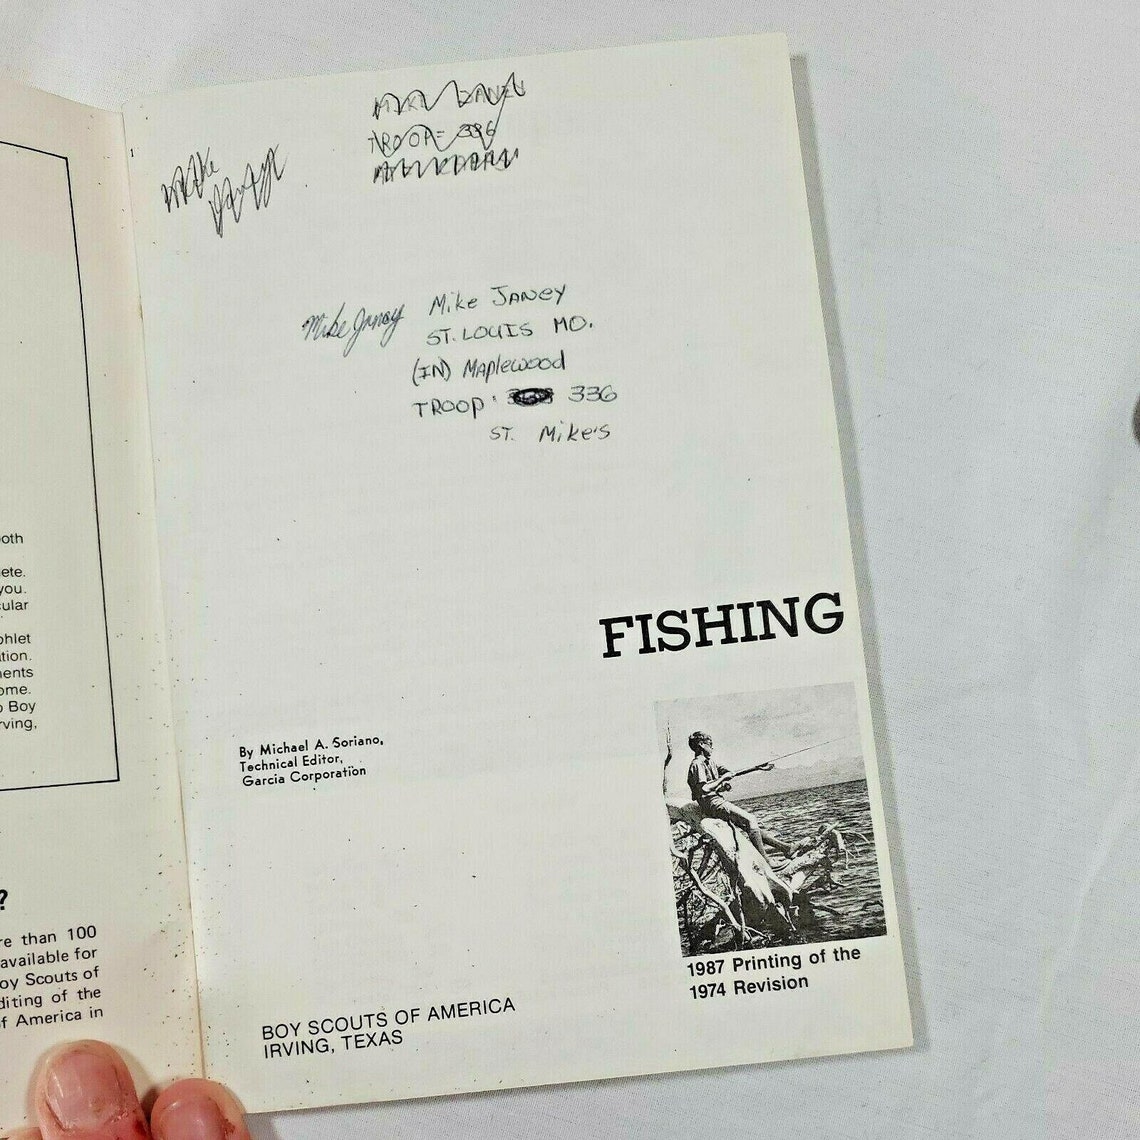 oth
ete.
you.
cular
phlet
tion.
ments
ome.
o Boy
rving,
?
re than 100
available for
oy Scouts of
diting of the
f America in
1
MIKE JANEY
TROOP= 336
Mike
Mike Janey
Mike JANey
ST. LOUIS MO.
(IN) Maplewood
TROOP: 336
ST. Mike's
FISHING
By Michael A. Soriano,
Technical Editor,
Garcia Corporation
1987 Printing of the
1974 Revision
BOY SCOUTS OF AMERICA
IRVING, TEXAS